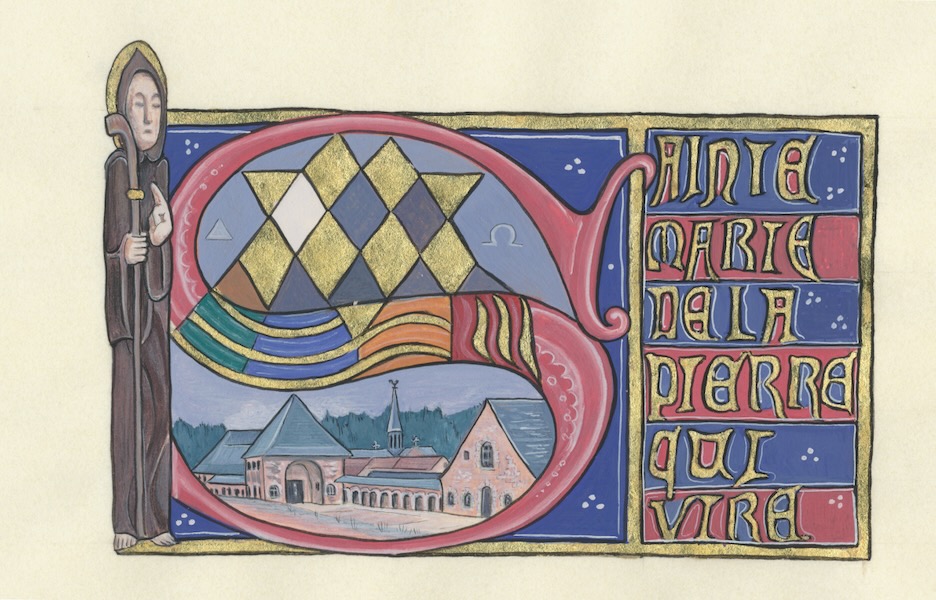 SAINTE
MARIE
DE LA
PIERRE
QUI
VIRE